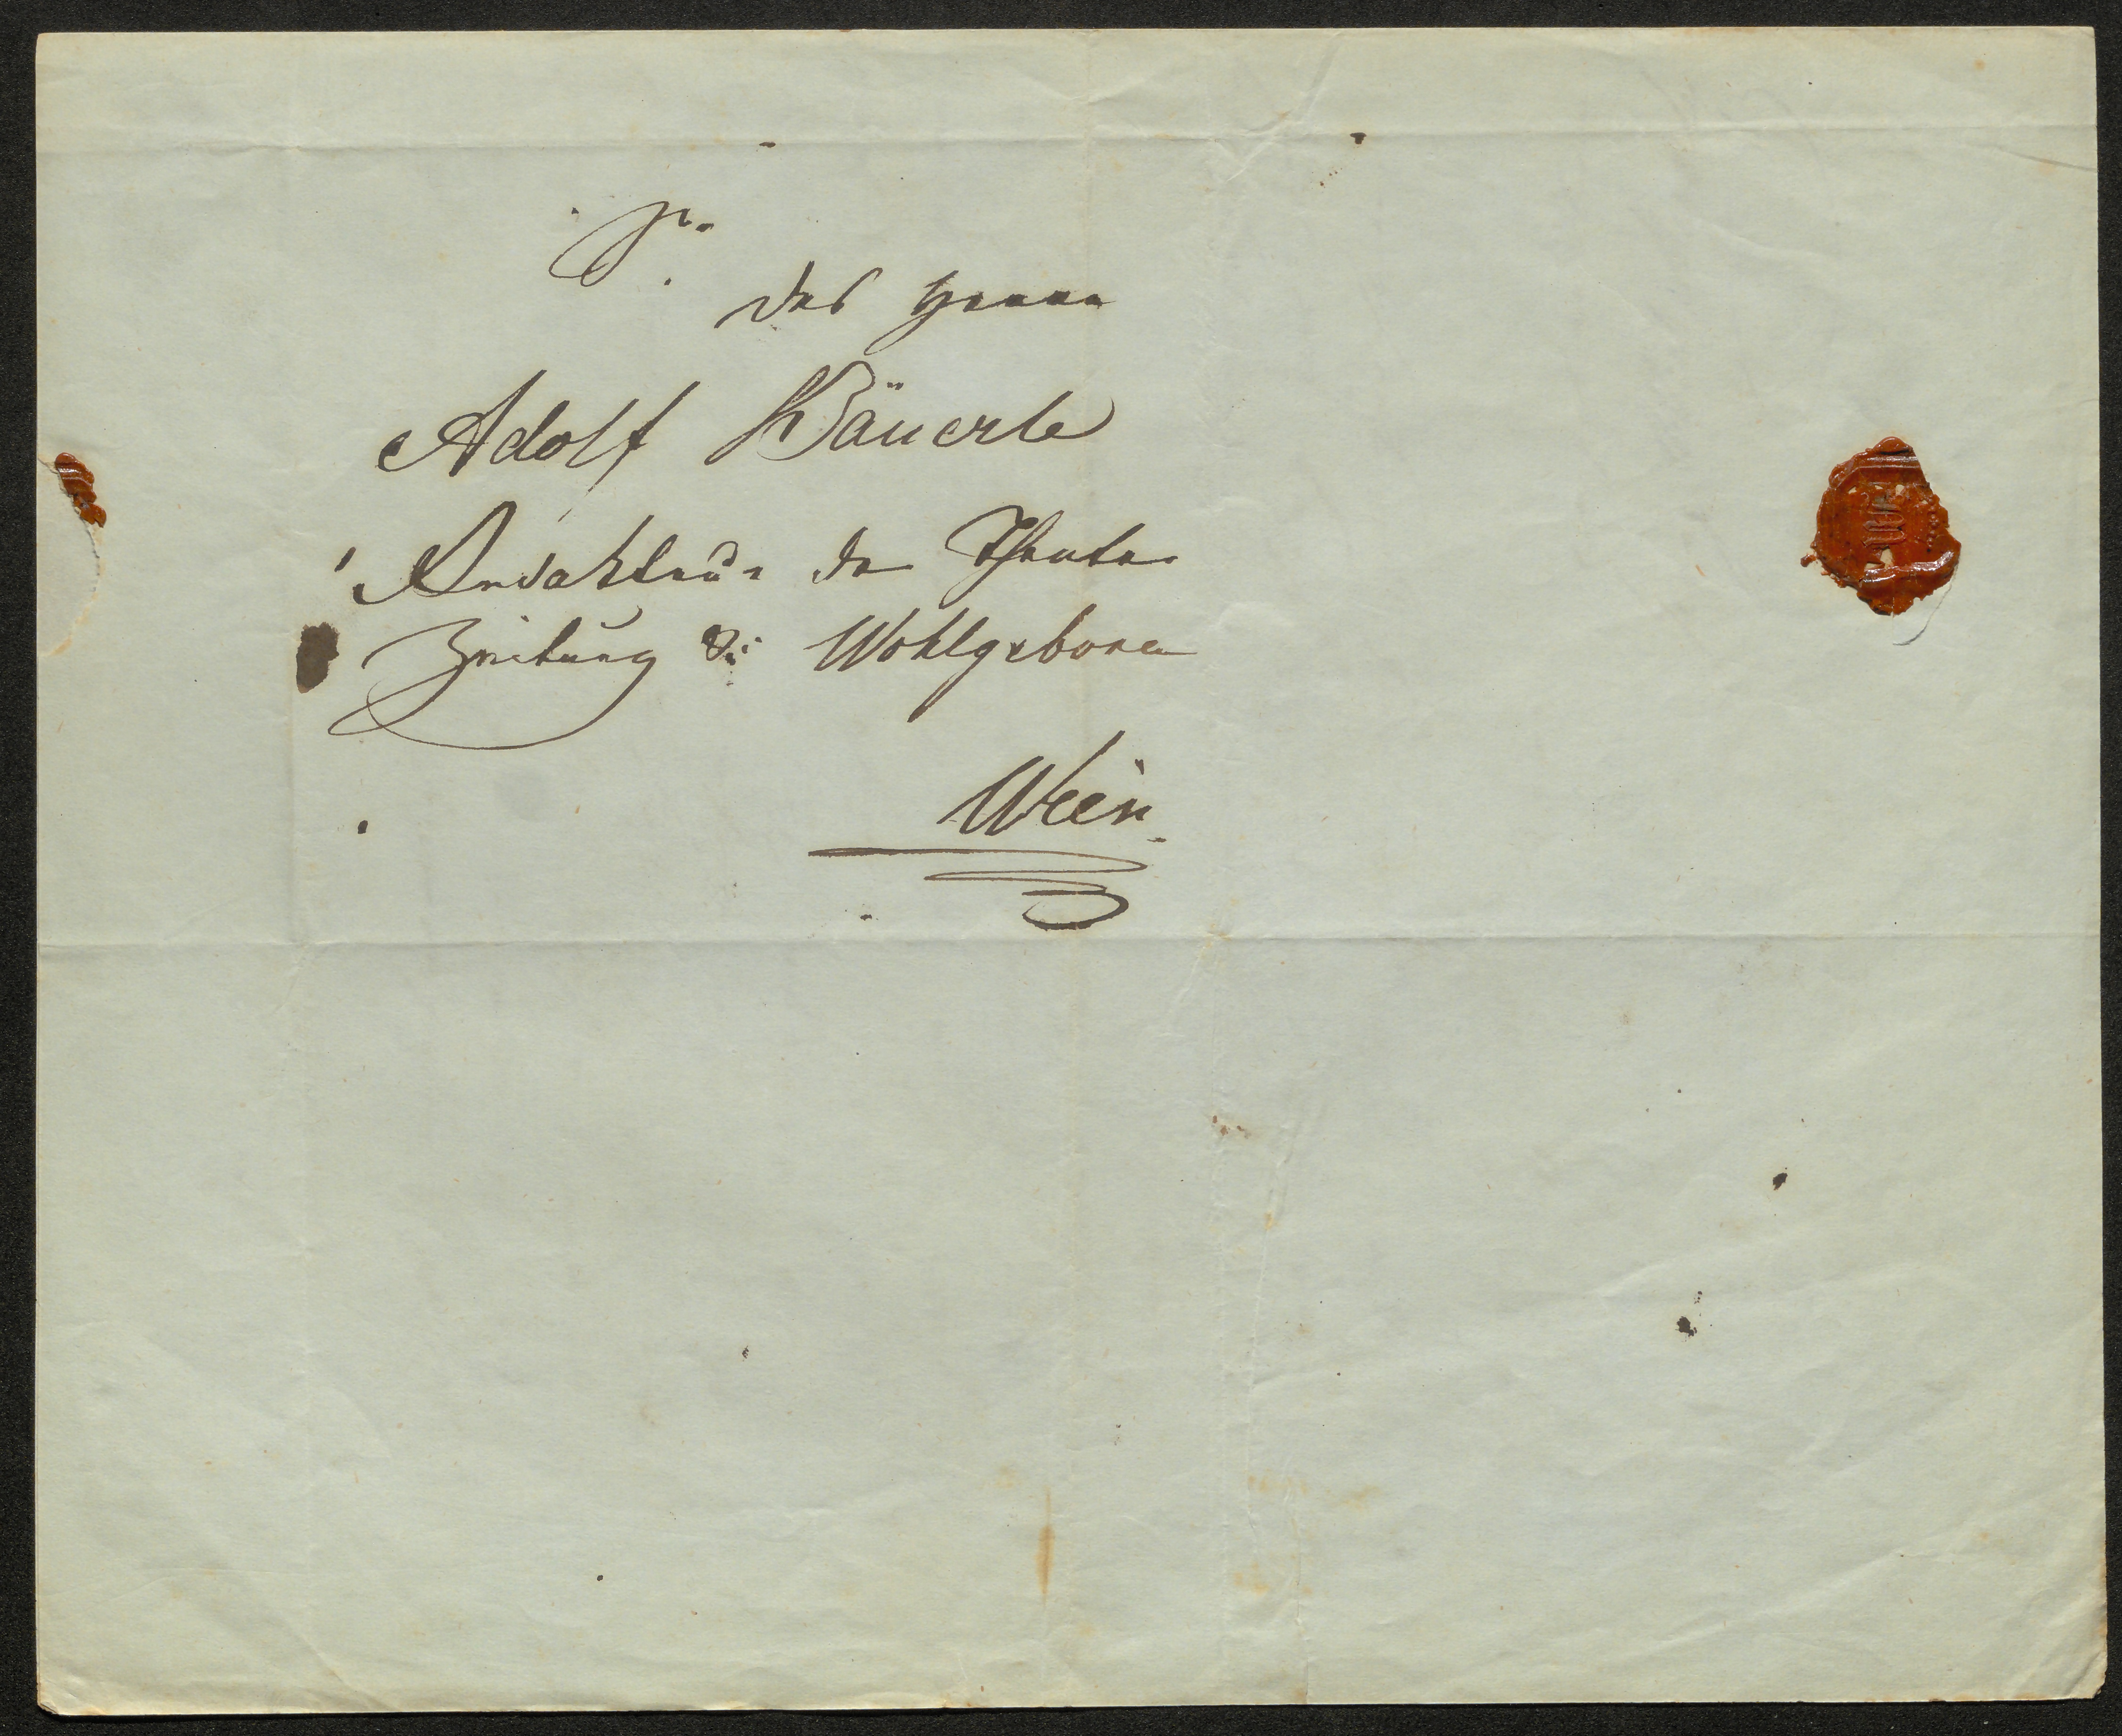 Sr.
des Herrn
Adolf Bäuerle
Redakteur der Theater
Zeitung &: Wohlgeboren
Wien